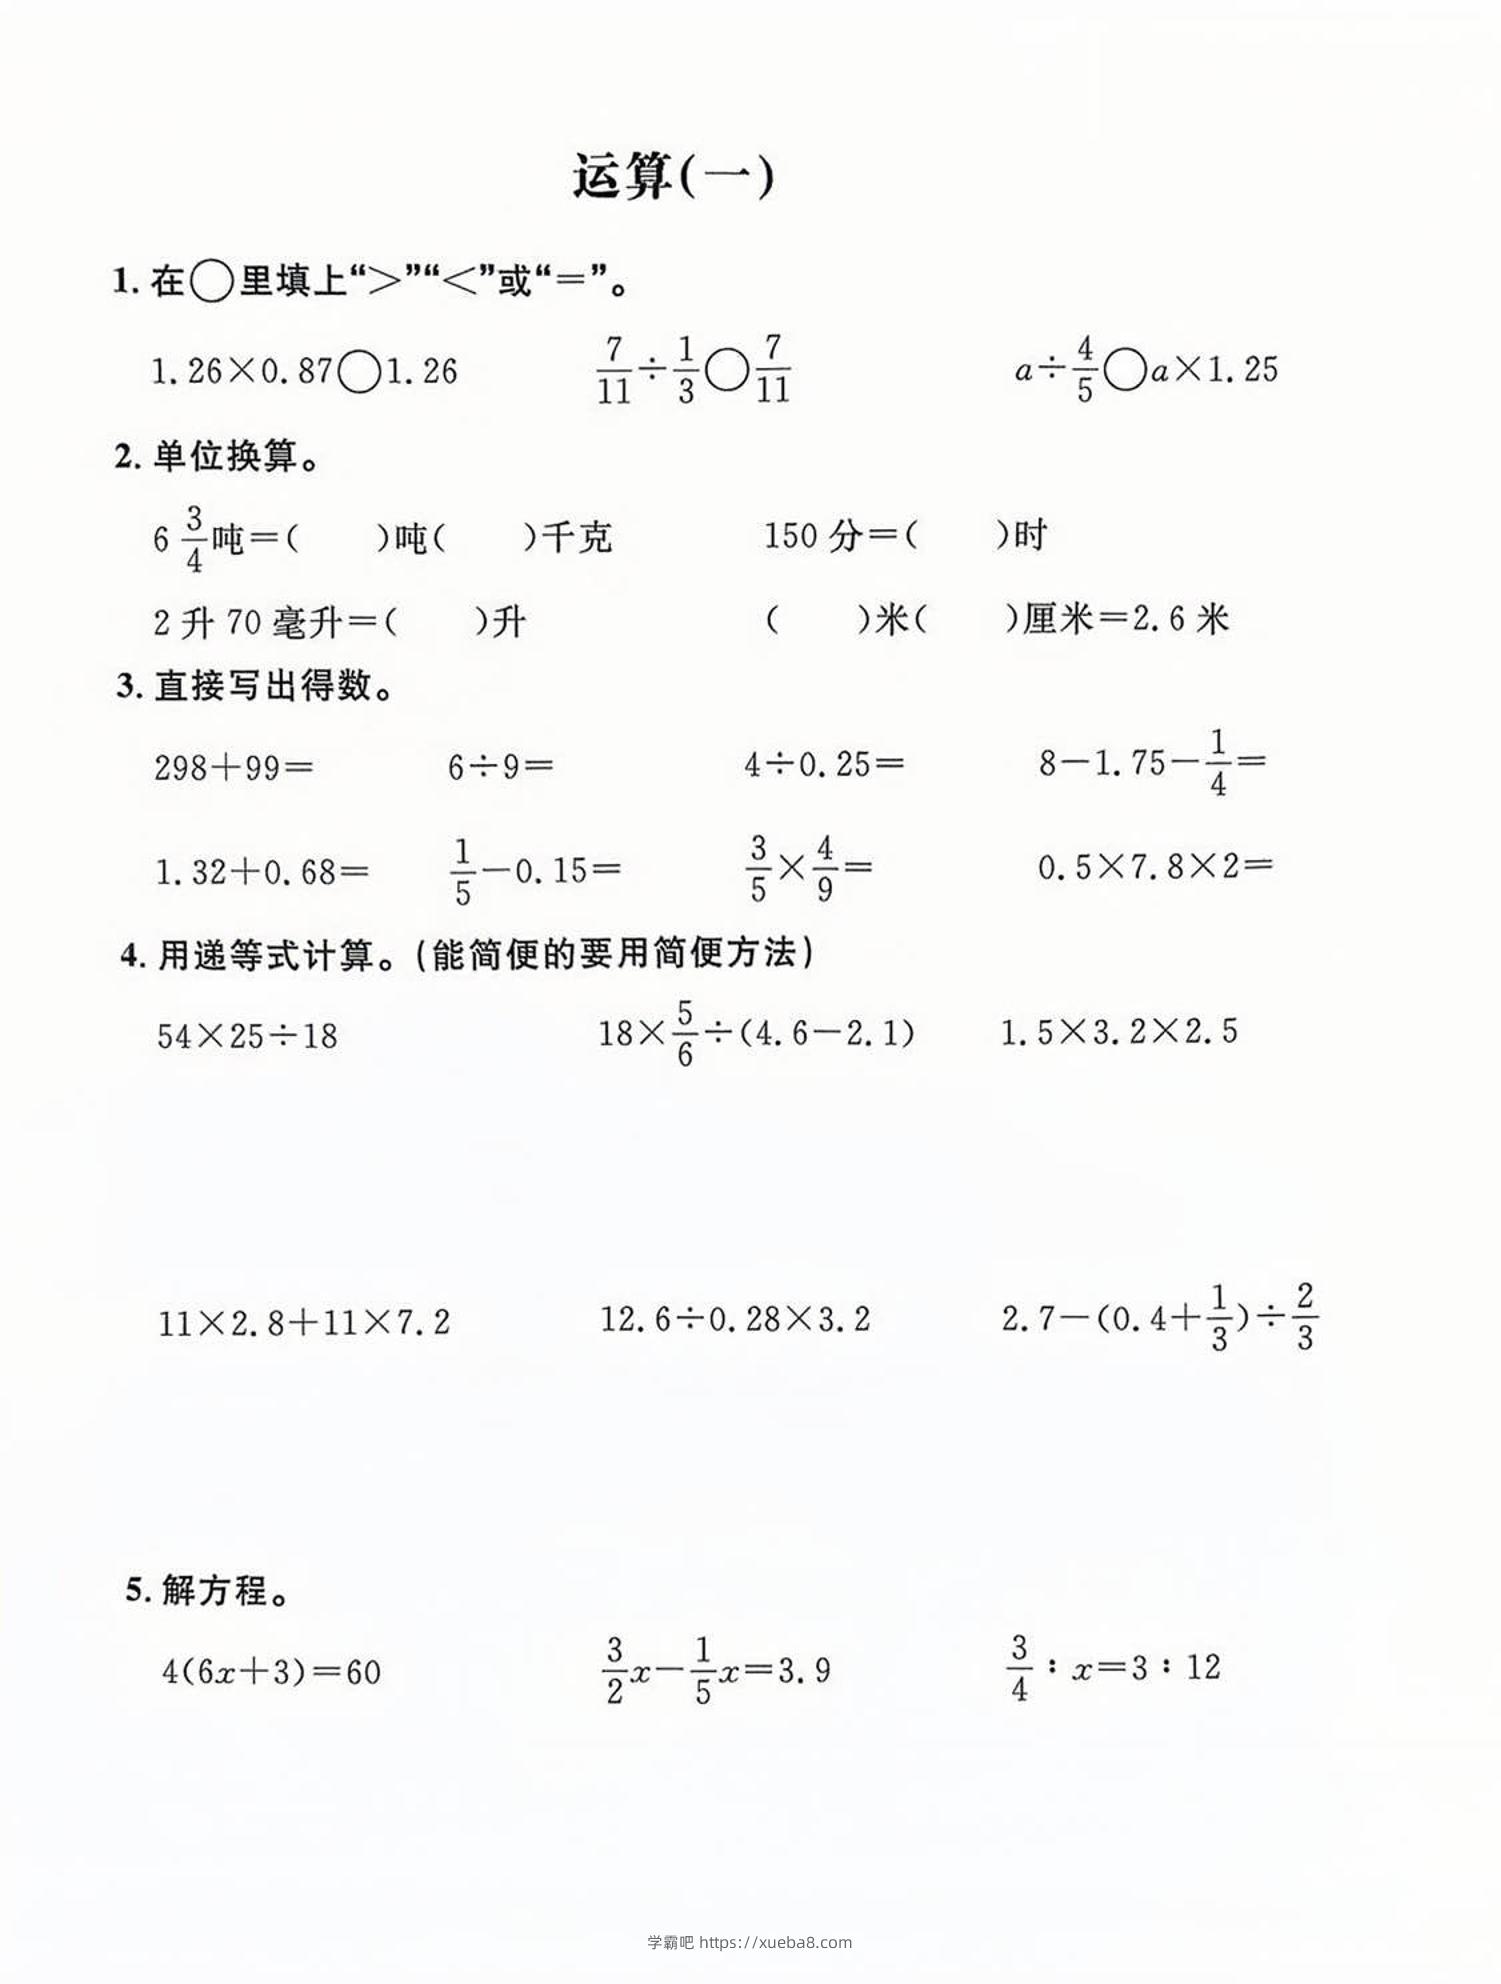 运算(一)
1. 在○里填上“＞”“＜”或“＝”。
1.26×0.87○1.26 7/11÷1/3○7/11 a÷4/5○a×1.25
2. 单位换算。
6 3/4吨＝( )吨( )千克 150 分＝( )时
2 升 70 毫升＝( )升 ( )米( )厘米＝2.6 米
3. 直接写出得数。
298＋99＝ 6÷9＝ 4÷0.25＝ 8－1.75－1/4＝
1.32＋0.68＝ 1/5－0.15＝ 3/5×4/9＝ 0.5×7.8×2＝
4. 用递等式计算。(能简便的要用简便方法)
54×25÷18 18×5/6÷(4.6－2.1) 1.5×3.2×2.5
11×2.8＋11×7.2 12.6÷0.28×3.2 2.7－(0.4＋1/3)÷2/3
5. 解方程。
4(6x＋3)＝60 3/2x－1/5x＝3.9 3/4∶x＝3∶12
学霸吧 https://xueba8.com